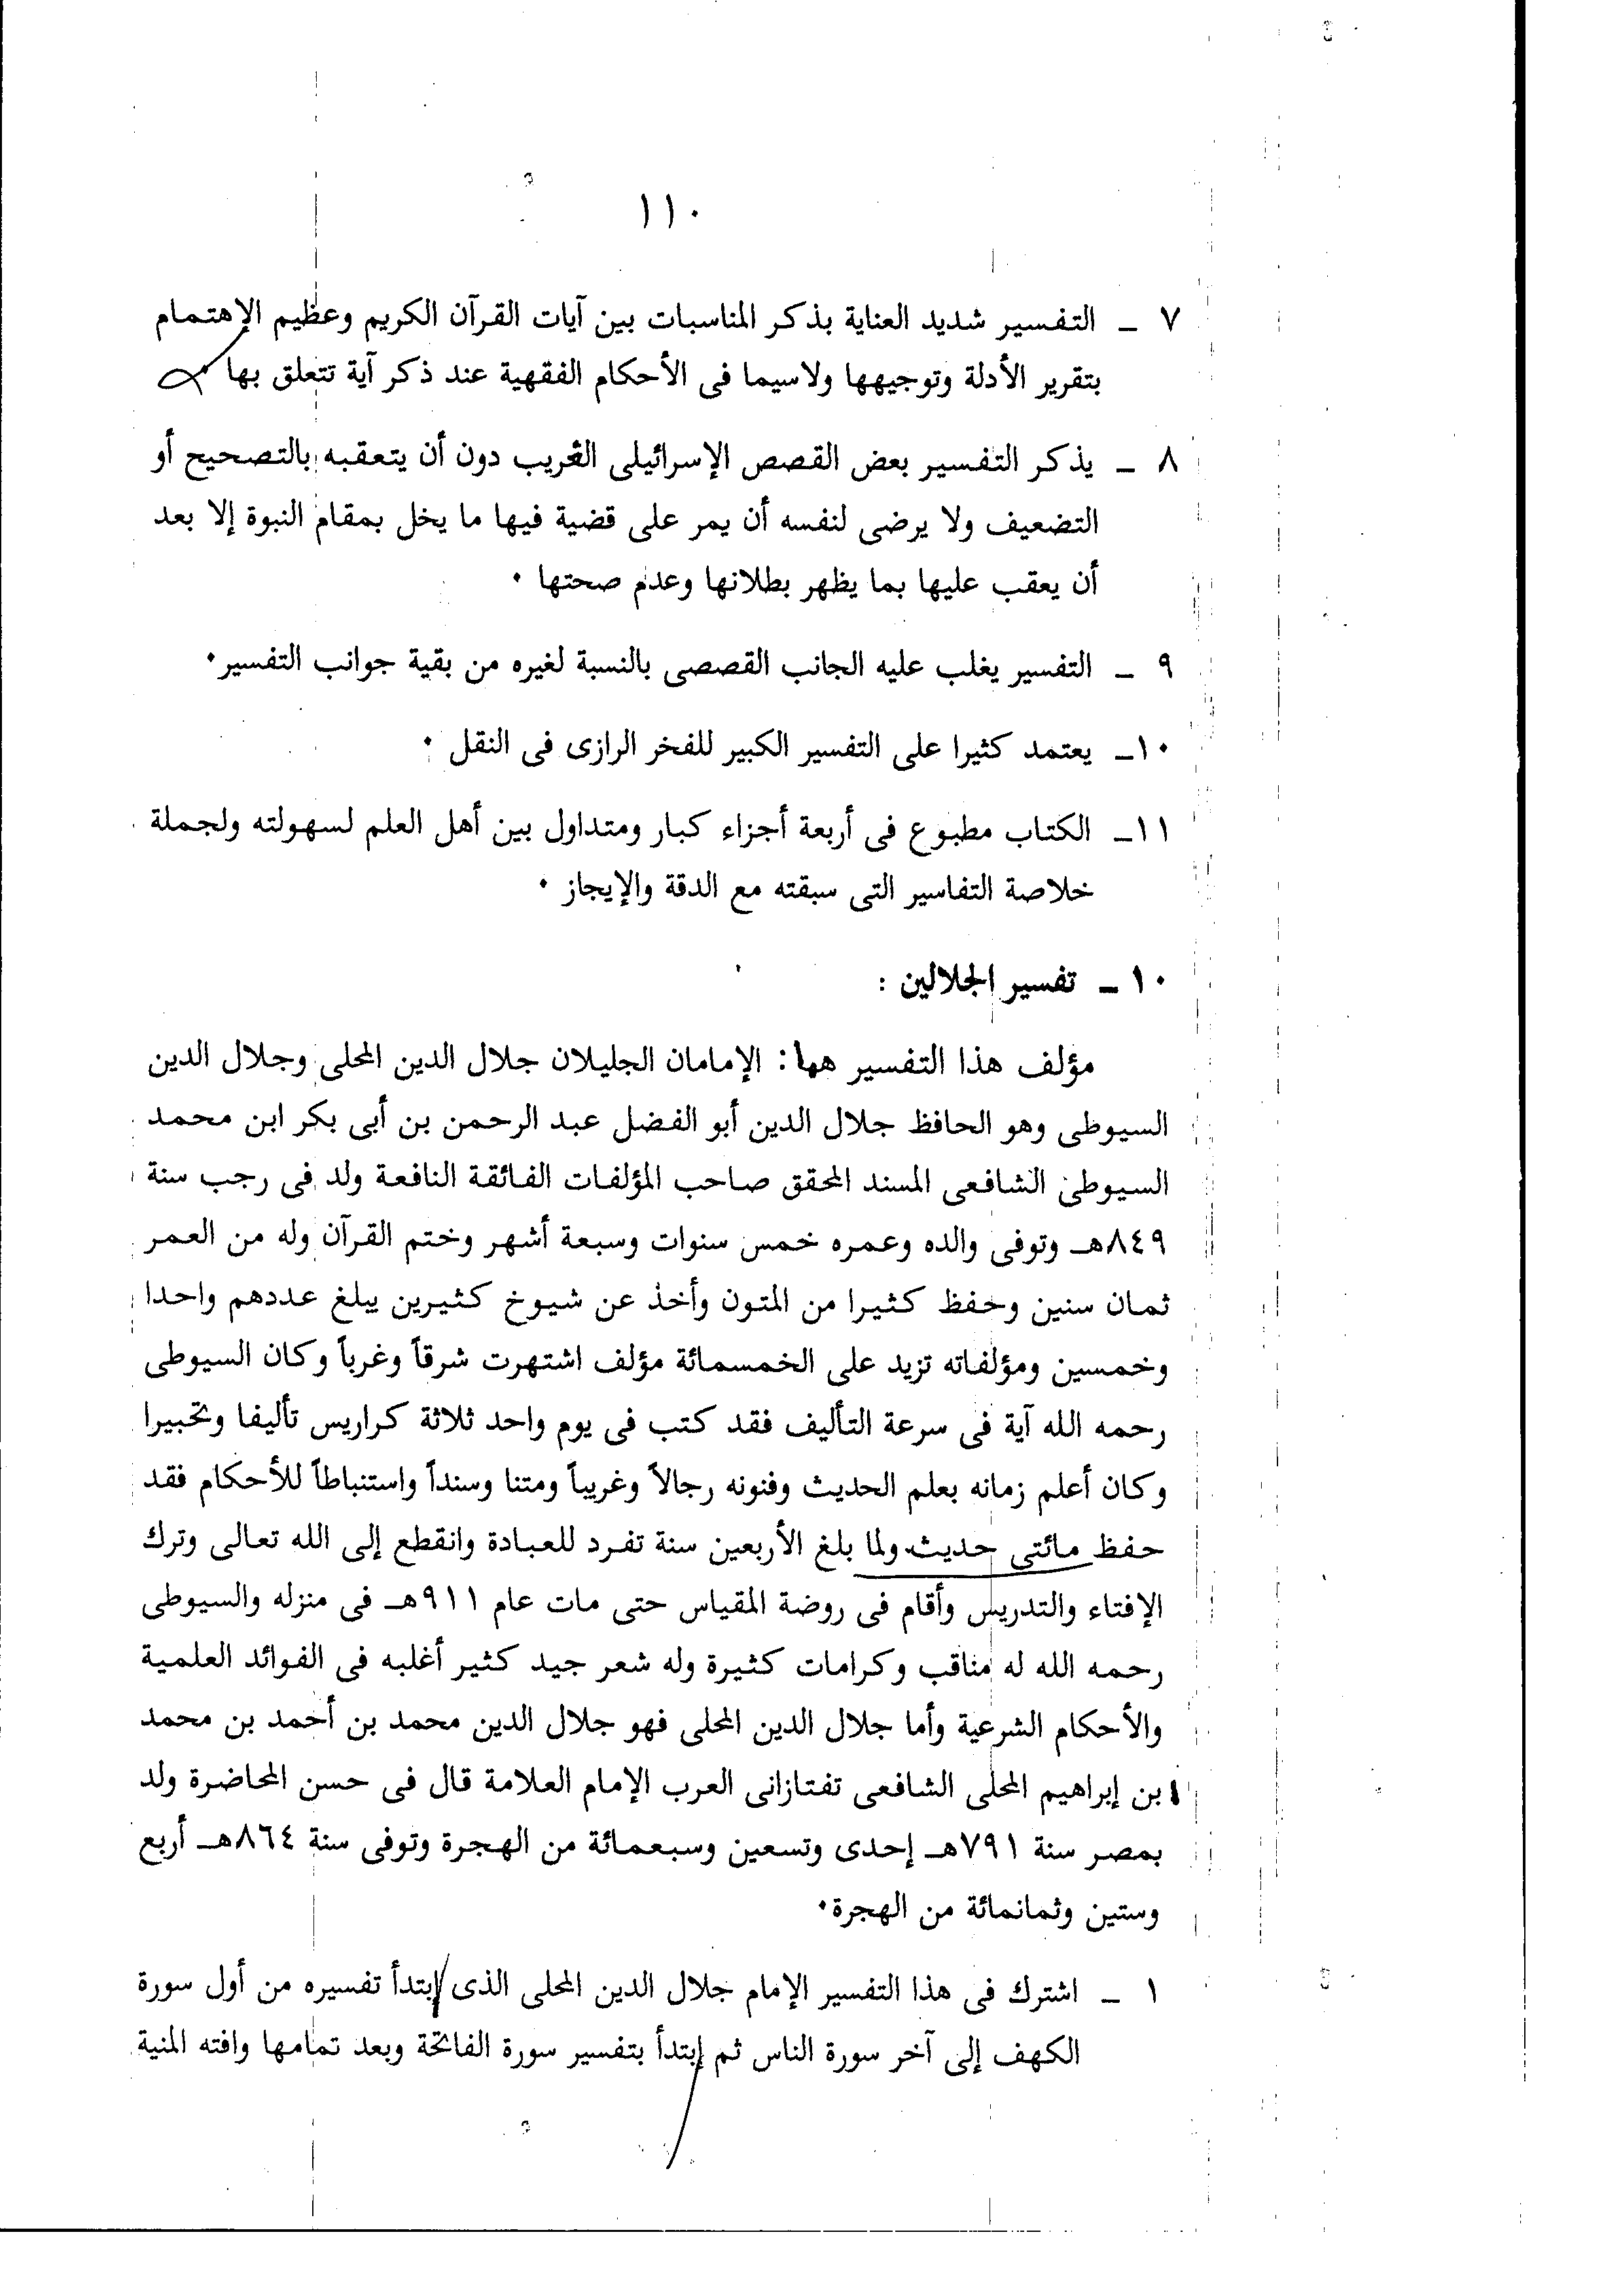 ١١٠
٧ ــ التفسير شديد العناية بذكر المناسبات بين آيات القرآن الكريم وعظيم الإهتمام
بتقرير الأدلة وتوجيهها ولاسيما فى الأحكام الفقهية عند ذكر آية تتعلق بها
٨ ــ يذكر التفسير بعض القصص الإسرائيلى الغريب دون أن يتعقبه بالتصحيح أو
التضعيف ولا يرضى لنفسه أن يمر على قضية فيها ما يخل بمقام النبوة إلا بعد
أن يعقب عليها بما يظهر بطلانها وعدم صحتها ٠
٩ ــ التفسير يغلب عليه الجانب القصصى بالنسبة لغيره من بقية جوانب التفسير٠
١٠ــ يعتمد كثيرا على التفسير الكبير للفخر الرازى فى النقل ٠
١١ــ الكتاب مطبوع فى أربعة أجزاء كبار ومتداول بين أهل العلم لسهولته ولجملة
خلاصة التفاسير التى سبقته مع الدقة والإيجاز ٠
١٠ ــ تفسير الجلالين :
مؤلف هذا التفسير هما: الإمامان الجليلان جلال الدين المحلى وجلال الدين
السيوطى وهو الحافظ جلال الدين أبو الفضل عبد الرحمن بن أبى بكر ابن محمد
السيوطى الشافعى المسند المحقق صاحب المؤلفات الفائقة النافعة ولد فى رجب سنة
٨٤٩هـ وتوفى والده وعمره خمس سنوات وسبعة أشهر وختم القرآن وله من العمر
ثمان سنين وحفظ كثيرا من المتون وأخذ عن شيوخ كثيرين يبلغ عددهم واحدا
وخمسين ومؤلفاته تزيد على الخمسمائة مؤلف اشتهرت شرقاً وغرباً وكان السيوطى
رحمه الله آية فى سرعة التأليف فقد كتب فى يوم واحد ثلاثة كراريس تأليفا وتحبيرا
وكان أعلم زمانه بعلم الحديث وفنونه رجالاً وغريباً ومتنا وسنداً واستنباطاً للأحكام فقد
حفظ مائتى حديث ولما بلغ الأربعين سنة تفرد للعبادة وانقطع إلى الله تعالى وترك
الإفتاء والتدريس وأقام فى روضة المقياس حتى مات عام ٩١١هـ فى منزله والسيوطى
رحمه الله له مناقب وكرامات كثيرة وله شعر جيد كثير أغلبه فى الفوائد العلمية
والأحكام الشرعية وأما جلال الدين المحلى فهو جلال الدين محمد بن أحمد بن محمد
ابن إبراهيم المحلى الشافعى تفتازانى العرب الإمام العلامة قال فى حسن المحاضرة ولد
بمصر سنة ٧٩١هـ إحدى وتسعين وسبعمائة من الهجرة وتوفى سنة ٨٦٤هـ أربع
وستين وثمانمائة من الهجرة٠
١ ــ اشترك فى هذا التفسير الإمام جلال الدين المحلى الذى إبتدأ تفسيره من أول سورة
الكهف إلى آخر سورة الناس ثم إبتدأ بتفسير سورة الفاتحة وبعد تمامها وافته المنية